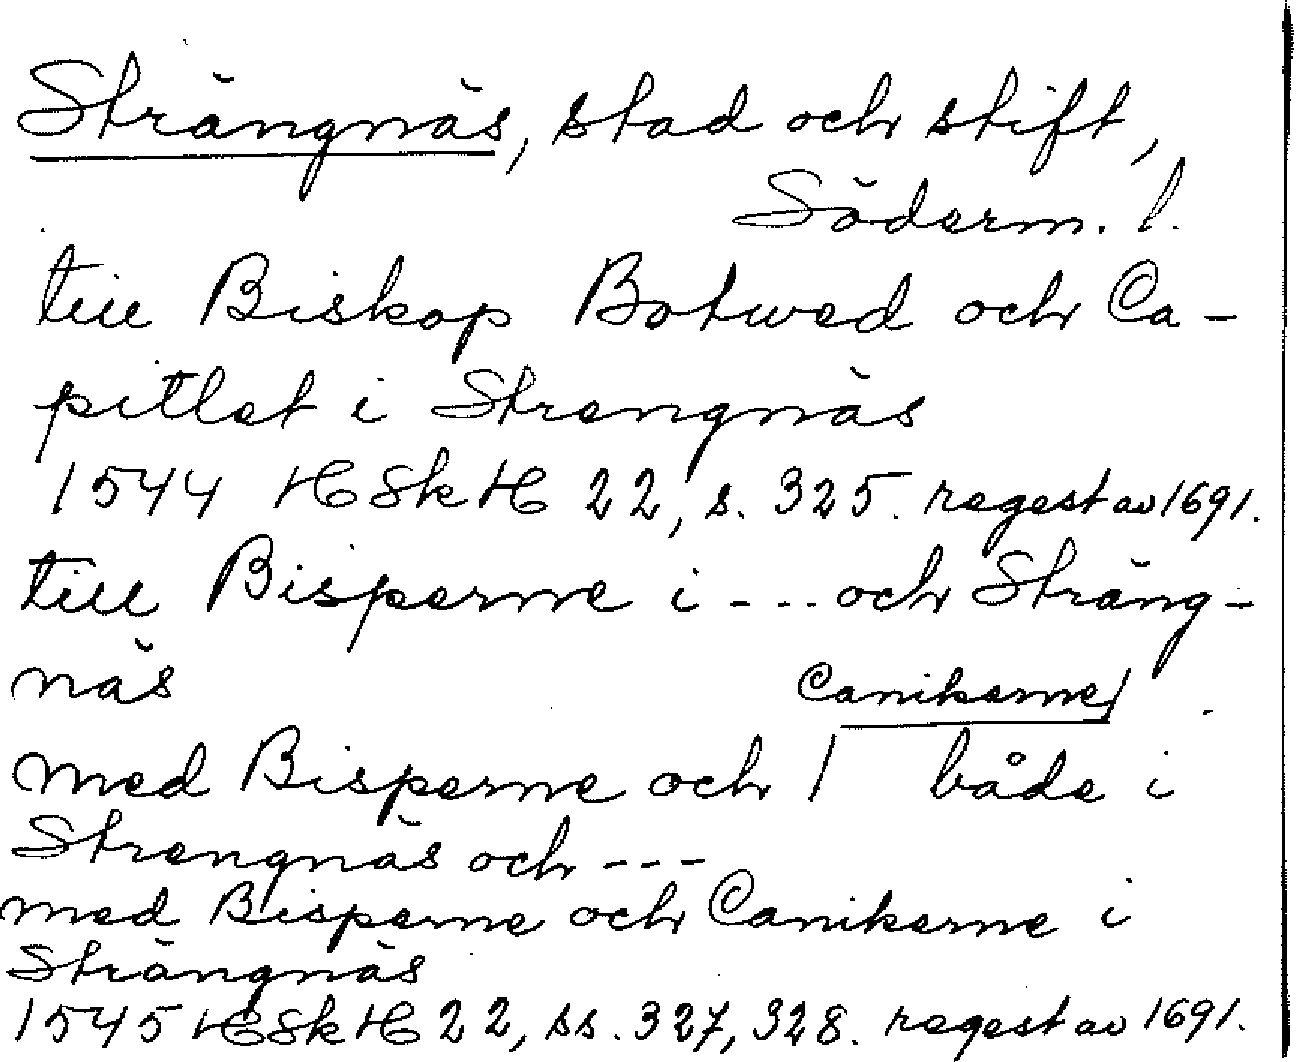 Strängnäs, stad och stift,
Söderm. l.
till Biskop Botwed och Ca-
pitlet i Strengnäs
1544 HSkH 22, s. 325. regest av 1691.
till Bisperne i --- och Sträng-
näs
Canikerne/
med Bisperne och / både i
Strengnäs och ---
med Bisperne och Canikerne i
Strängnäs
1545 HSkH 22, ss. 327, 328. regest av 1691.